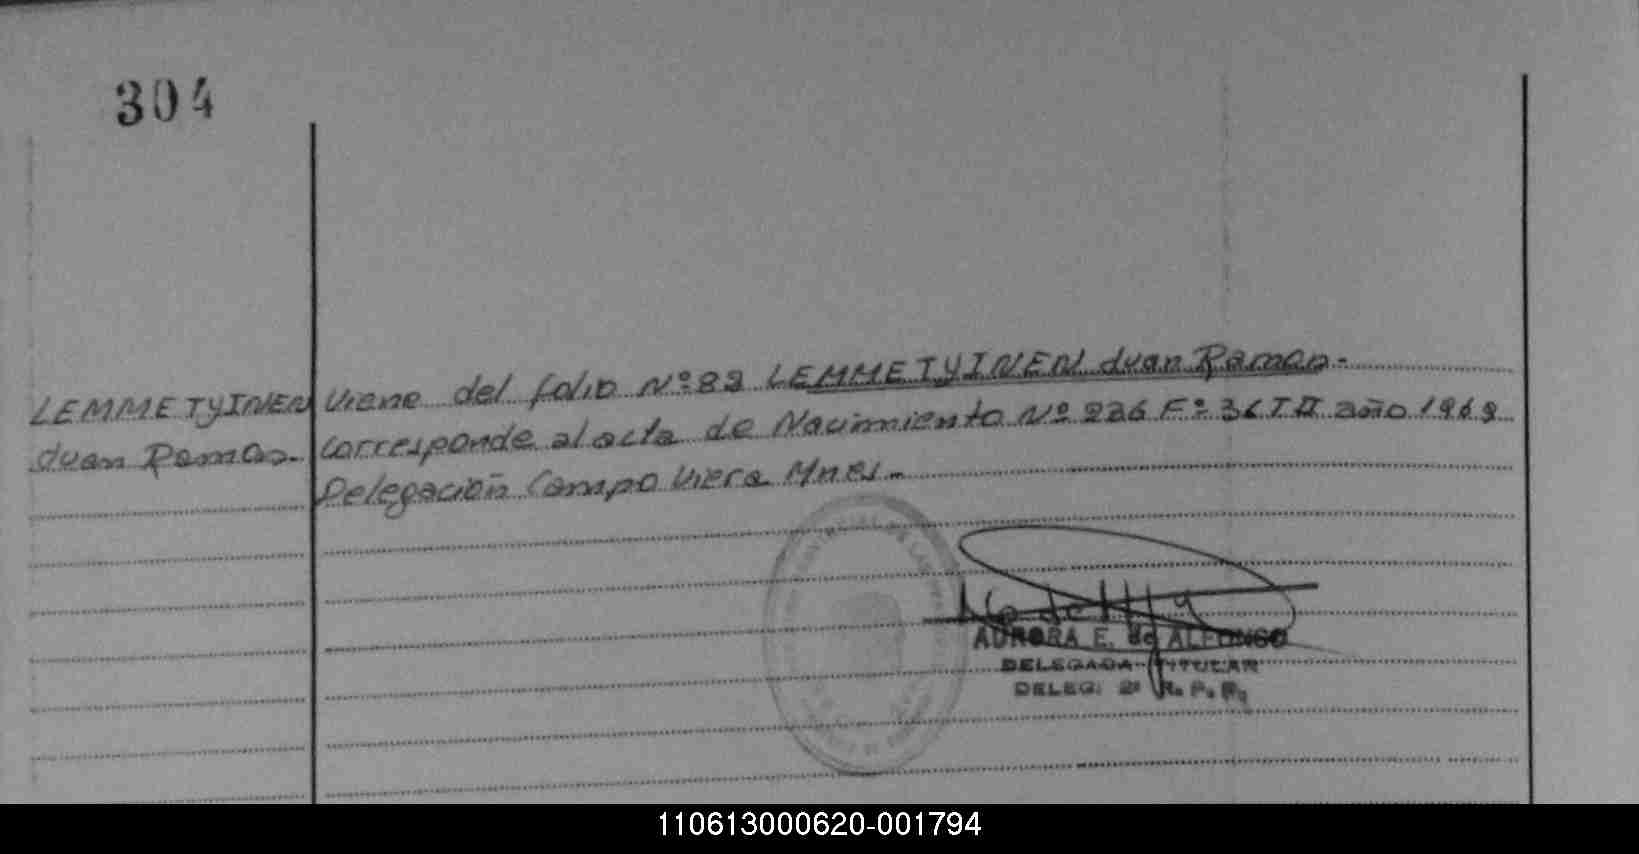 304
LEMMETYINEN
Juan Ramon.
Viene del folio Nº 83 LEMMETYINEN Juan Ramon.-
corresponde al acta de Nacimiento Nº 236 Fº 36 T II año 1969
Delegación Campo Viera Mnes.-
AURORA E. de ALFONSO
DELEGADA TITULAR
DELEG. 2ª R. P. P.
110613000620-001794